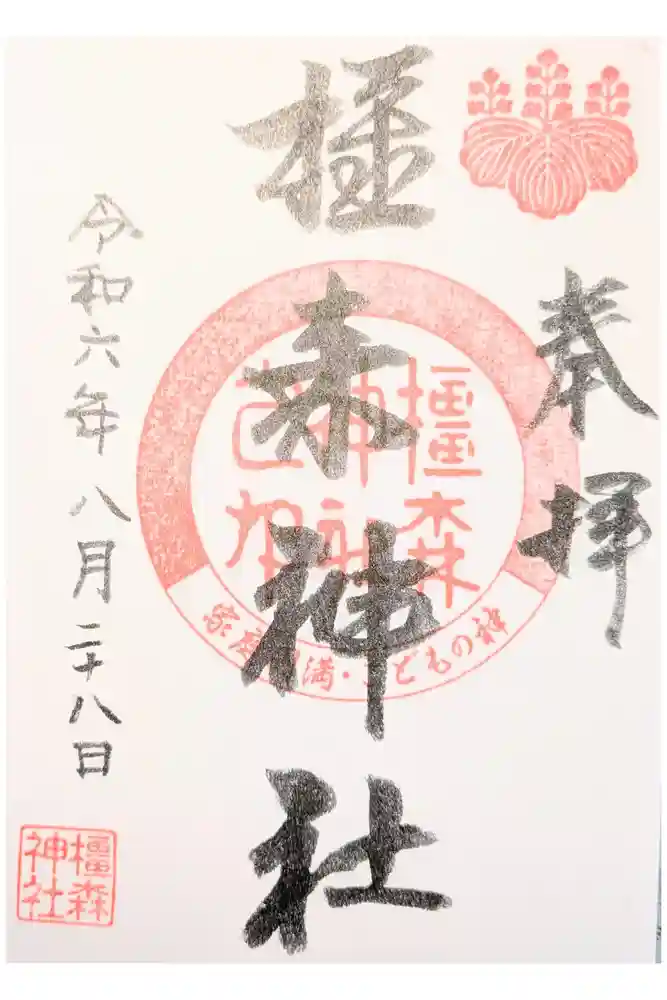 奉拝
橿森神社
令和六年八月二十八日
橿森
神社
家庭円満・こどもの神
橿森
神社